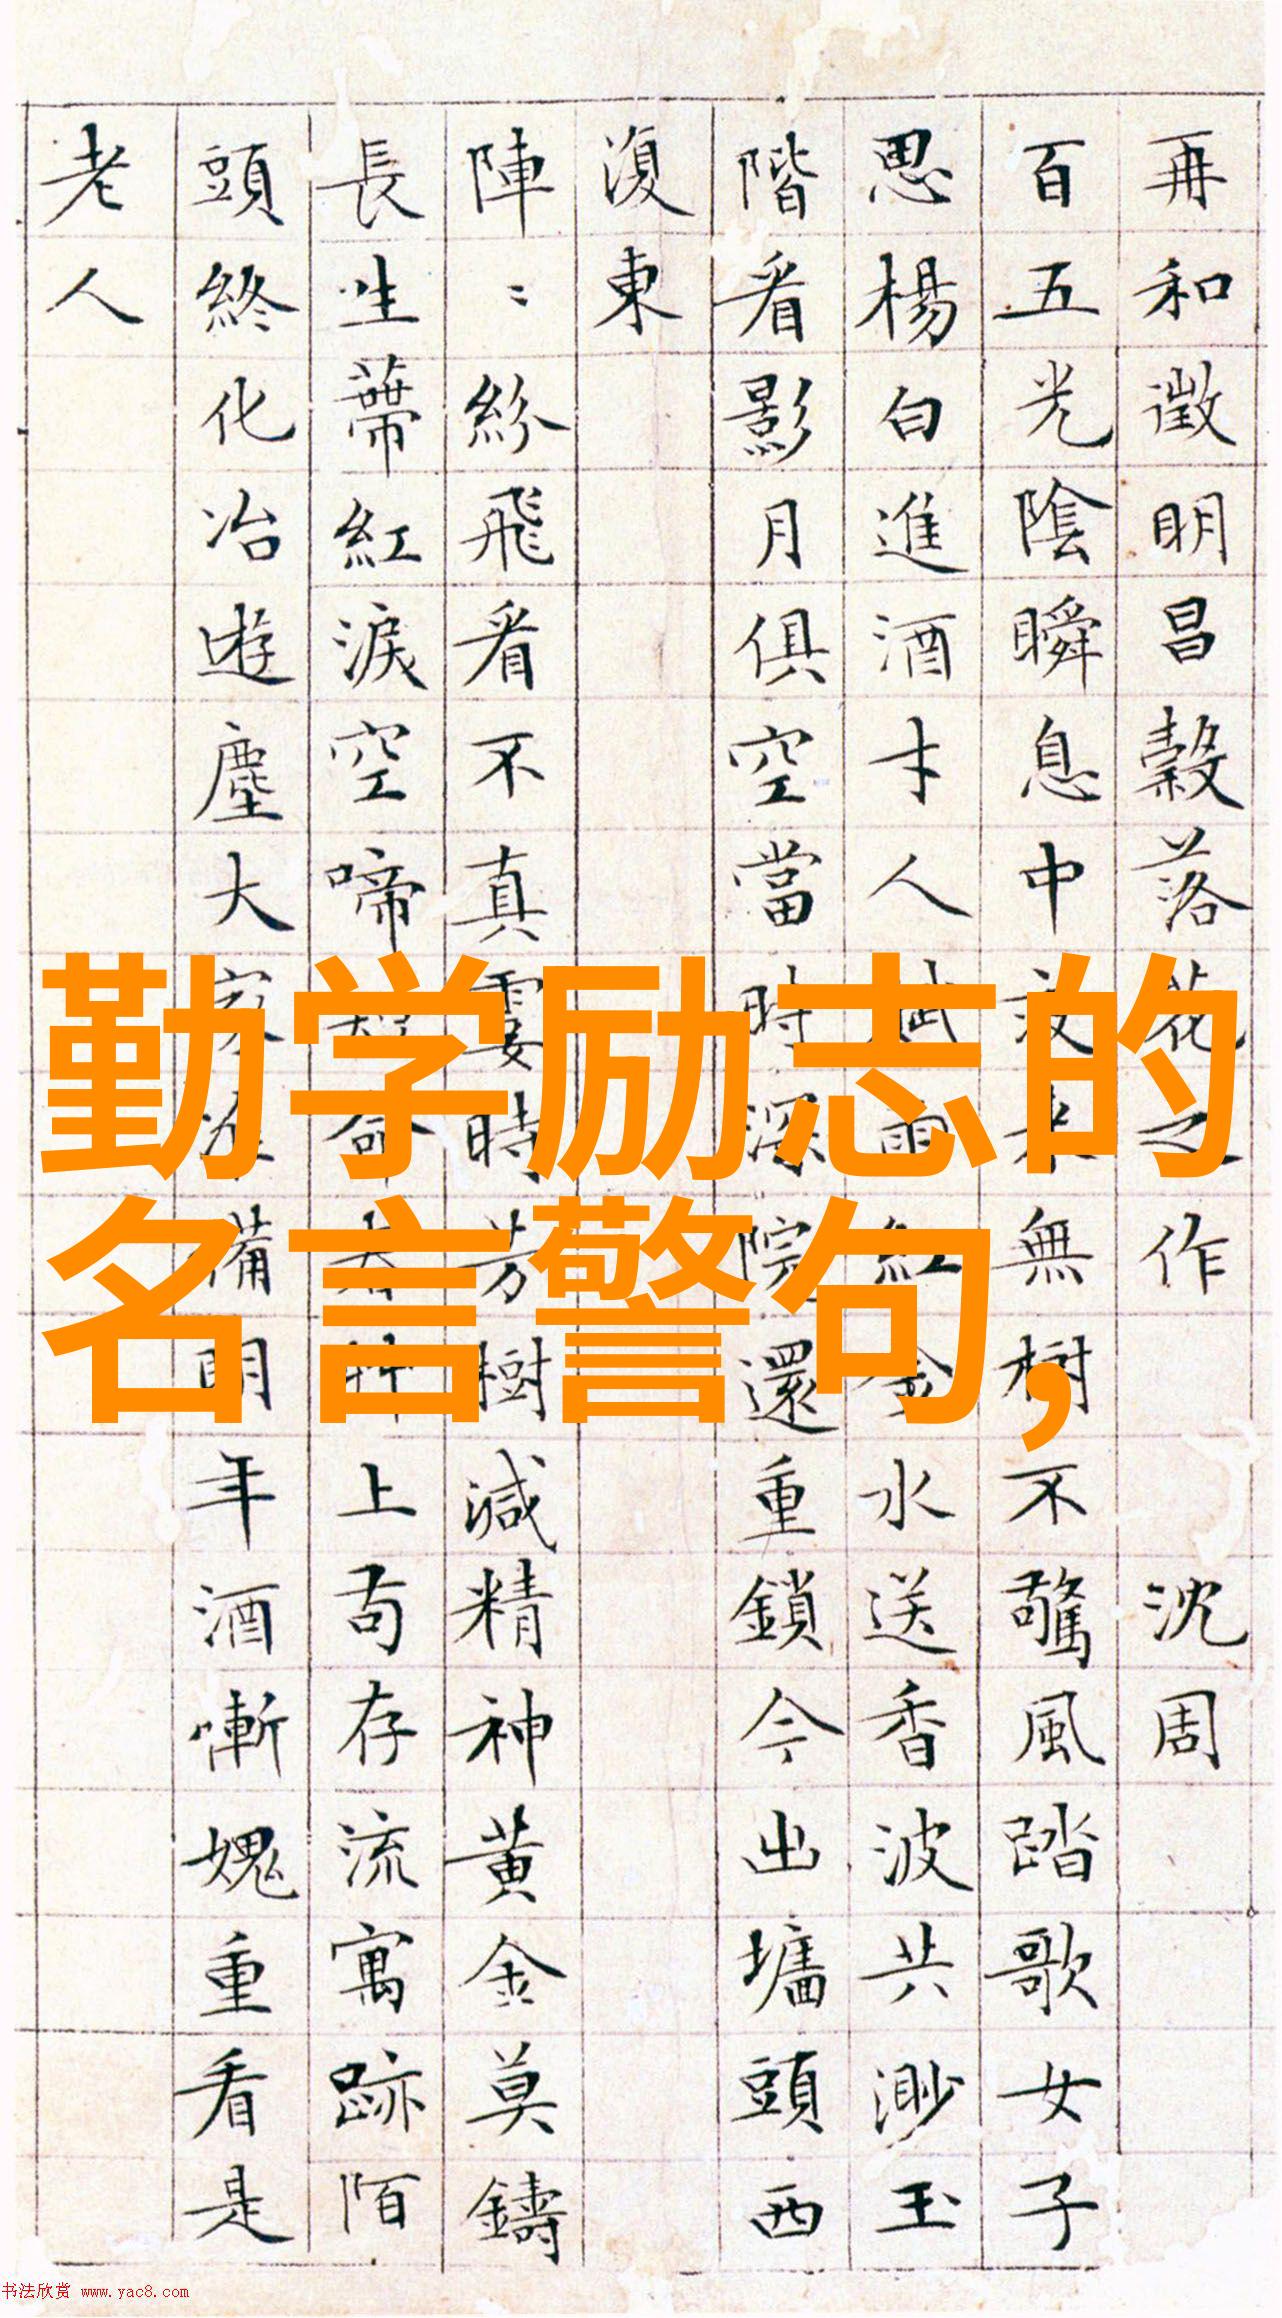 再和徵明昌穀落花之作 沈周
百五光陰瞬息中夜来無樹不驚風踏歌女子
思楊白進酒才人賦雨紅金水送香波共渺玉
階看影月俱空當時深院還重鎖今出墻頭西
復東
陣〻紛飛看不真霎時芳樹減精神黃金莫鑄
長生蒂紅淚空啼短命春草上苟存流寓跡陌
頭終化冶遊塵大家准備明年酒慚愧重看是
老人
勤学励志的
名言警句,
书法欣赏 www.yac8.com